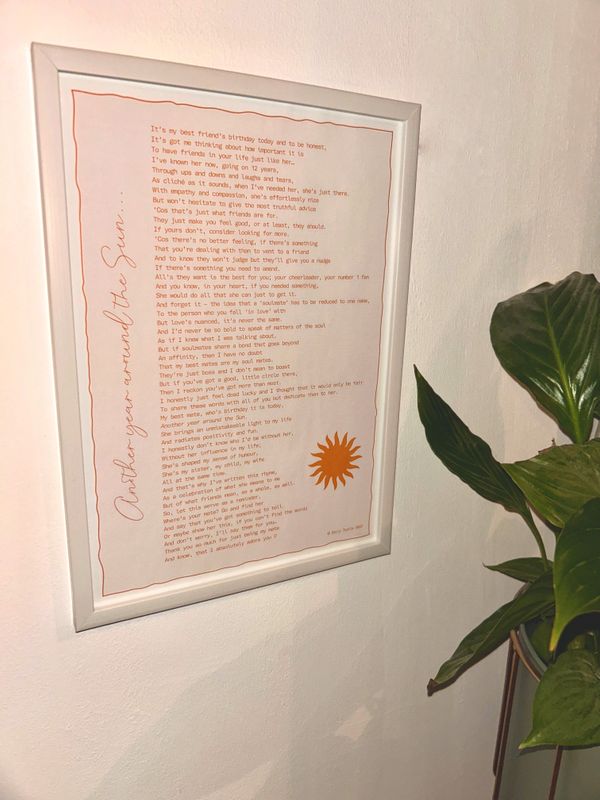 Another year around the Sun...
It's my best friend's birthday today and to be honest,
It's got me thinking about how important it is
To have friends in your life just like her…
I've known her now, going on 12 years,
Through ups and downs and laughs and tears,
As cliché as it sounds, when I've needed her, she's just there.
With empathy and compassion, she's effortlessly nice
But won't hesitate to give the most truthful advice
'Cos that's just what friends are for.
They just make you feel good, or at least, they should.
If yours don't, consider looking for more.
'Cos there's no better feeling, if there's something
That you're dealing with then to vent to a friend
And to know they won't judge but they'll give you a nudge
If there's something you need to amend.
All's they want is the best for you; your cheerleader, your number 1 fan
And you know, in your heart, if you needed something,
She would do all that she can just to get it.
And forget it - the idea that a 'soulmate' has to be reduced to one name,
To the person who you fall 'in love' with
But love's nuanced, it's never the same.
And I'd never be so bold to speak of matters of the soul
As if I knew what I was talking about.
But if soulmates share a bond that goes beyond
An affinity, then I have no doubt
That my best mates are my soul mates.
They're just boss and I don't mean to boast
But if you've got a good, little circle there,
Then I reckon you've got more than most.
I honestly just feel dead lucky and I thought that it would only be fair
To share these words with all of you but dedicate them to her.
My best mate, who's birthday it is today,
Another year around the Sun.
She brings an unmistakeable light to my life
And radiates positivity and fun.
I honestly don't know who I'd be without her,
Without her influence in my life,
She's shaped my sense of humour,
She's my sister, my child, my wife
All at the same time.
And that's why I've written this rhyme,
As a celebration of what she means to me
But of what friends mean, as a whole, as well.
So, let this serve as a reminder,
Where's your mate? Go and find her
And say that you've got something to tell.
Or maybe show her this, if you can't find the words
And don't worry, I'll say them for you,
Thank you so much for just being my mate
And know, that I absolutely adore you